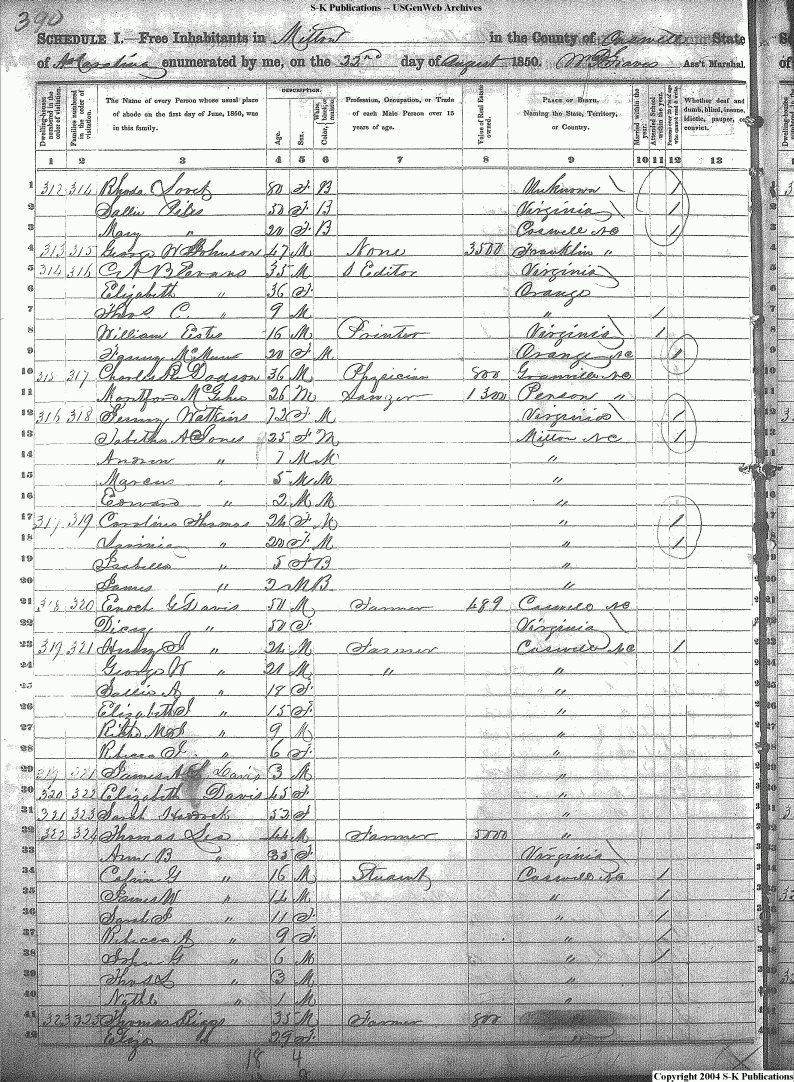 S-K Publications -- USGenWeb Archives
390
SCHEDULE I.—Free Inhabitants in Milton in the County of Caswell State
of N Carolina enumerated by me, on the 22nd day of August 1850. Ass't Marshal.
Dwelling-houses numbered in the order of visitation. Families numbered in the order of visitation. The Name of every Person whose usual place of abode on the first day of June, 1850, was in this family. DESCRIPTION. Age. Sex. Color, White, black, or mulatto. Profession, Occupation, or Trade of each Male Person over 15 years of age. Value of Real Estate owned. PLACE OF BIRTH. Naming the State, Territory, or Country. Married within the year. Attended School within the year. Persons over 20 y'rs of age who cannot read & write. Whether deaf and dumb, blind, insane, idiotic, pauper, or convict.
1 2 3 4 5 6 7 8 9 10 11 12 13
1 312 314 Rhoda 80 F B Unknown /
2 Sallie Giles 50 F B Virginia /
3 Mary " 20 F B Caswell NC /
4 313 315 George W Johnson 47 M None 3500 Franklin "
5 314 316 C A B Evans 35 M Editor Virginia
6 Elizabeth " 36 F Orange
7 Thos C. " 9 M " /
8 William Estes 16 M Printer Virginia /
9 20 F M Orange NC /
10 315 317 Charles R Dodson 36 M Physician 800 Granville NC
11 Montford McGehee 26 M Lawyer 1300 Person "
12 316 318 Watkins 72 F M Virginia /
13 Tabitha A Jones 25 F M Milton NC /
14 Andrew " 7 M M "
15 Marcus " 5 M M "
16 Edward " 2 M M "
17 317 319 Caroline Thomas 24 F M " /
18 Lavinia " 20 F M " /
19 Isabella " 5 F B "
20 James " 2 M B "
21 318 320 Enoch G Davis 50 M Farmer 489 Caswell NC
22 Dicey " 50 F Virginia
23 319 321 Henry " 24 M Farmer Caswell NC /
24 George W " 21 M " "
25 Sallie A " 19 F "
26 Elizabeth J " 15 F "
27 " 9 M "
28 Rebecca J " 6 F "
29 319 321 James A Davis 3 M "
30 320 322 Elizabeth Davis 45 F "
31 321 323 Sarah 52 F "
32 322 324 Thomas Lea 44 M Farmer 5000 "
33 Ann B " 35 F Virginia
34 Calvin G " 16 M Student Caswell NC /
35 James W " 14 M " /
36 Sarah J " 11 F " /
37 Rebecca A " 9 F " /
38 John G " 6 M " /
39 Thos L " 3 M "
40 Nathl " 1 M "
41 323 325 Thomas Riggs 35 M Farmer 800
42 Eliza " 29 F "
18 4
Copyright 2004 S-K Publications